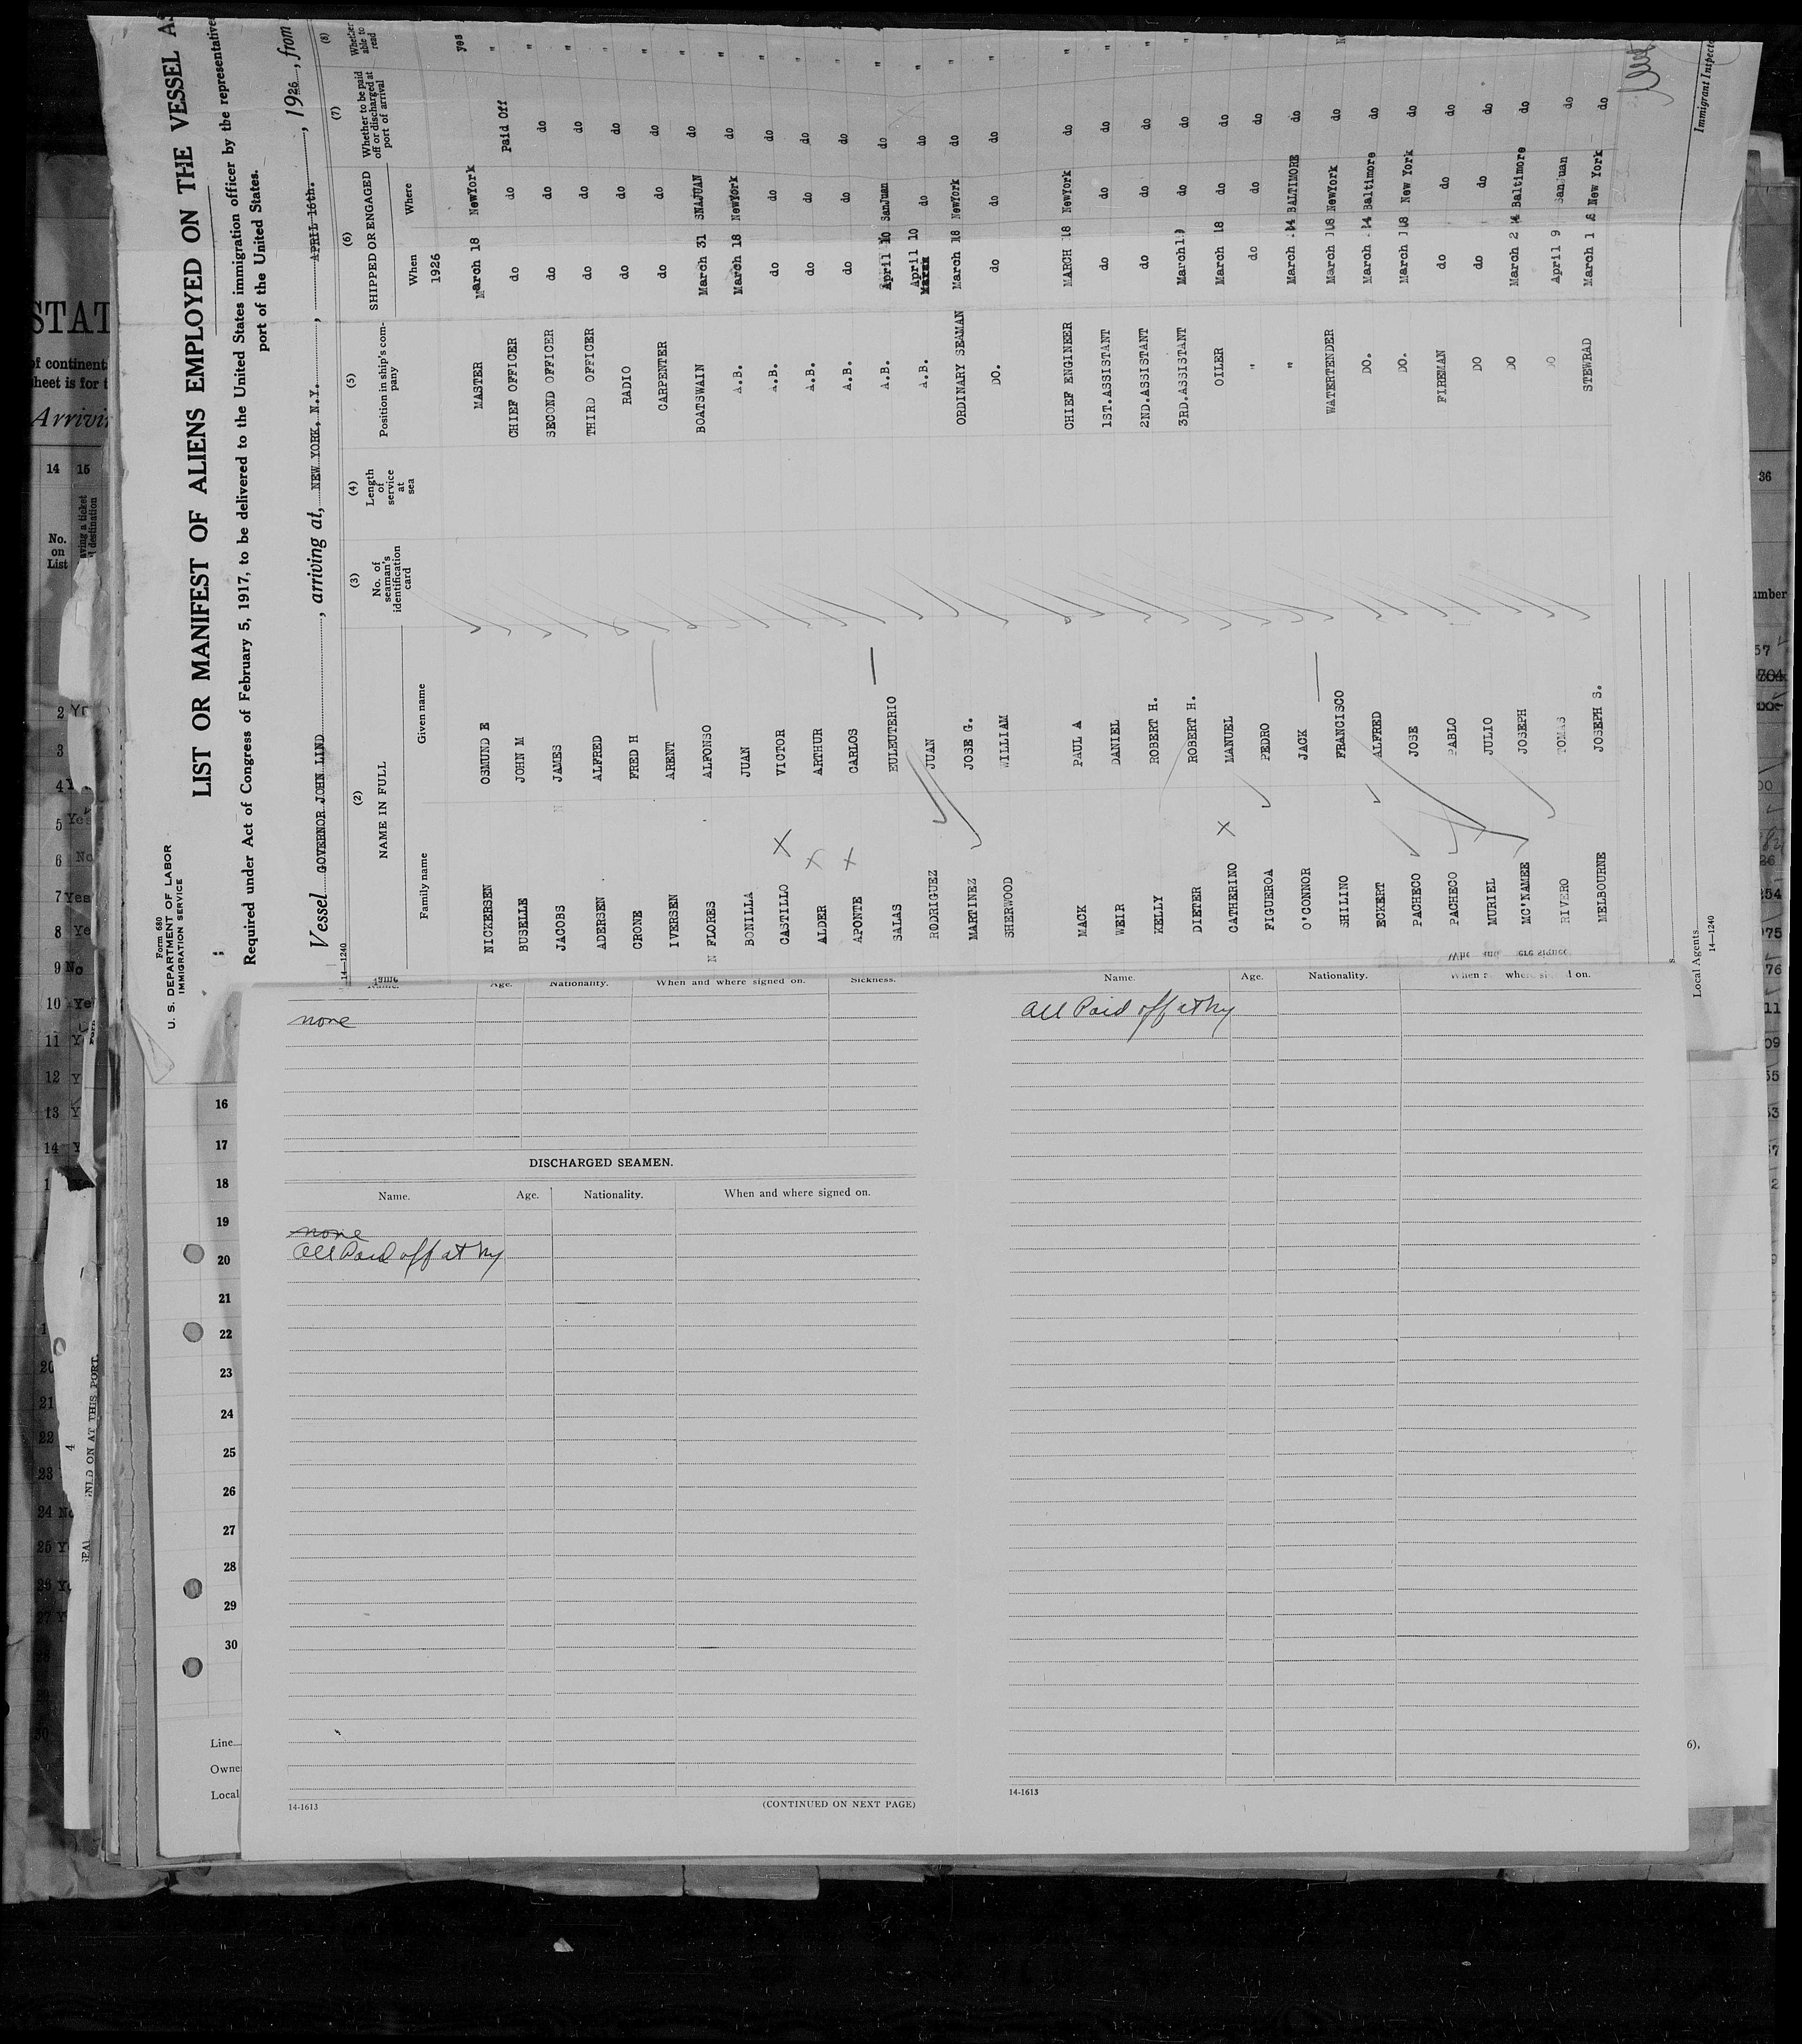 Form 680
U. S. DEPARTMENT OF LABOR
IMMIGRATION SERVICE
LIST OR MANIFEST OF ALIENS EMPLOYED ON THE VESSEL AS
Required under Act of Congress of February 5, 1917, to be delivered to the United States immigration officer by the representative
port of the United States.
Vessel GOVERNOR JOHN LIND, arriving at, NEW YORK, N.Y., APRIL 16th., 1926, from
14—1240
(2) (3) (4) (5) (6) (7) (8)
NAME IN FULL No. of seaman's identification card Length of service at sea Position in ship's company SHIPPED OR ENGAGED Whether to be paid off or discharged at port of arrival Whether able to read
Family name Given name When Where
1926 yes
NICKERSEN OSMUND E MASTER March 18 NewYork "
BUSELLE JOHN M CHIEF OFFICER do do Paid Off "
JACOBS JAMES SECOND OFFICER do do do "
ADERSEN ALFRED THIRD OFFICER do do do "
CRONE FRED H RADIO do do do "
IVERSEN ARENT CARPENTER do do do "
FLORES ALFONSO BOATSWAIN March 31 SNAJUAN do "
BONILLA JUAN A.B. March 18 NewYork do "
CASTILLO VICTOR A.B. do do do "
ALDER ARTHUR A.B. do do do "
APONTE CARLOS A.B. do do do "
SALAS EULEUTERIO A.B. April 10 SanJuan do "
RODRIGUEZ JUAN A.B. April 10 do do "
MARTINEZ JOSE G. ORDINARY SEAMAN March 18 NewYork do "
SHERWOOD WILLIAM DO. do do do "
MACK PAUL A CHIEF ENGINEER MARCH 18 NewYork do "
WEIR DANIEL 1ST.ASSISTANT do do do "
KELLY ROBERT H. 2ND.ASSISTANT do do do "
DIETER ROBERT H. 3RD.ASSISTANT March19 do do "
CATHERINO MANUEL OILER March 18 do do "
FIGUEROA PEDRO " do do do "
O'CONNOR JACK " March 24 BALTIMORE do
SHILINO FRANCISCO WATERTENDER March 18 NewYork do
ECKERT ALFRED DO. March 24 Baltimore do
PACHECO JOSE DO. March 18 New York do
PACHECO PABLO FIREMAN do do do
MURIEL JULIO DO do do do
MC'NAMEE JOSEPH DO March 24 Baltimore do
RIVERO TOMAS DO April 9 SanJuan do
MELBOURNE JOSEPH S. STEWRAD March 18 New York do
Local Agents
14—1240
Immigrant Inspector
STAT
of continent
sheet is for t
Arrivin
14 15
No.
on
List
36
Name. Age. Nationality. When and where signed on. Sickness.
none
DISCHARGED SEAMEN.
Name. Age. Nationality. When and where signed on.
none
All Paid off at NY
14-1613
(CONTINUED ON NEXT PAGE)
Name. Age. Nationality. When and where signed on.
All Paid off at NY
14-1613
16
17
18
19
20
21
22
23
24
25
26
27
28
29
30
Line
Owne
Local